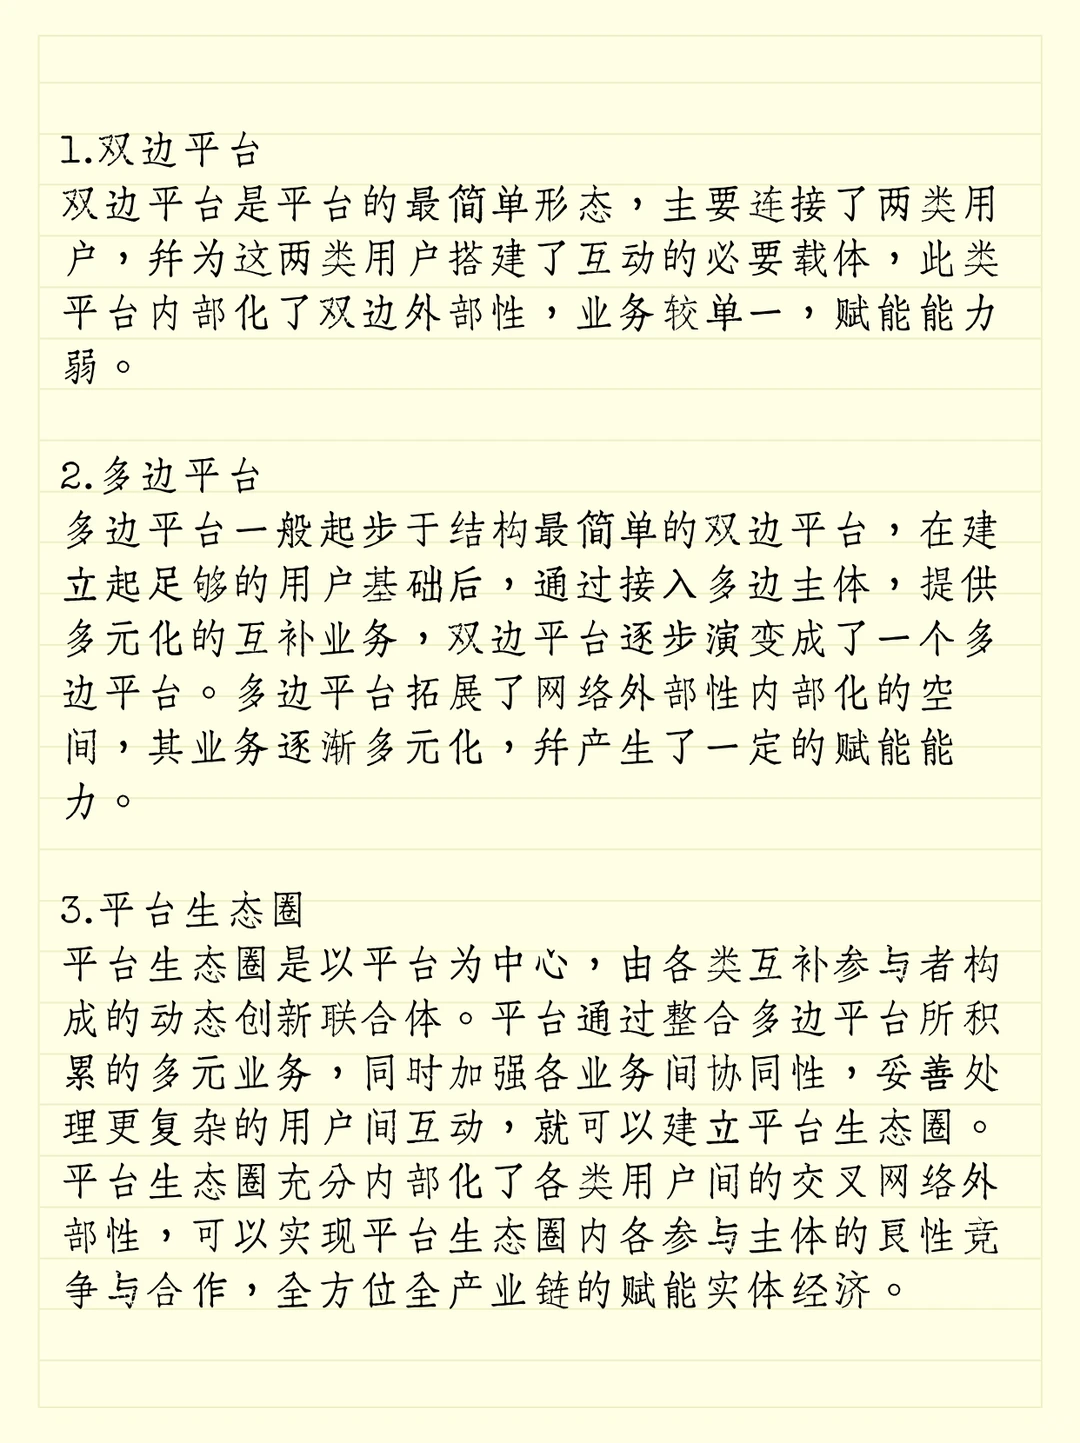 1.双边平台
双边平台是平台的最简单形态，主要连接了两类用
户，并为这两类用户搭建了互动的必要载体，此类
平台内部化了双边外部性，业务较单一，赋能能力
弱。
2.多边平台
多边平台一般起步于结构最简单的双边平台，在建
立起足够的用户基础后，通过接入多边主体，提供
多元化的互补业务，双边平台逐步演变成了一个多
边平台。多边平台拓展了网络外部性内部化的空
间，其业务逐渐多元化，并产生了一定的赋能能
力。
3.平台生态圈
平台生态圈是以平台为中心，由各类互补参与者构
成的动态创新联合体。平台通过整合多边平台所积
累的多元业务，同时加强各业务间协同性，妥善处
理更复杂的用户间互动，就可以建立平台生态圈。
平台生态圈充分内部化了各类用户间的交叉网络外
部性，可以实现平台生态圈内各参与主体的良性竞
争与合作，全方位全产业链的赋能实体经济。